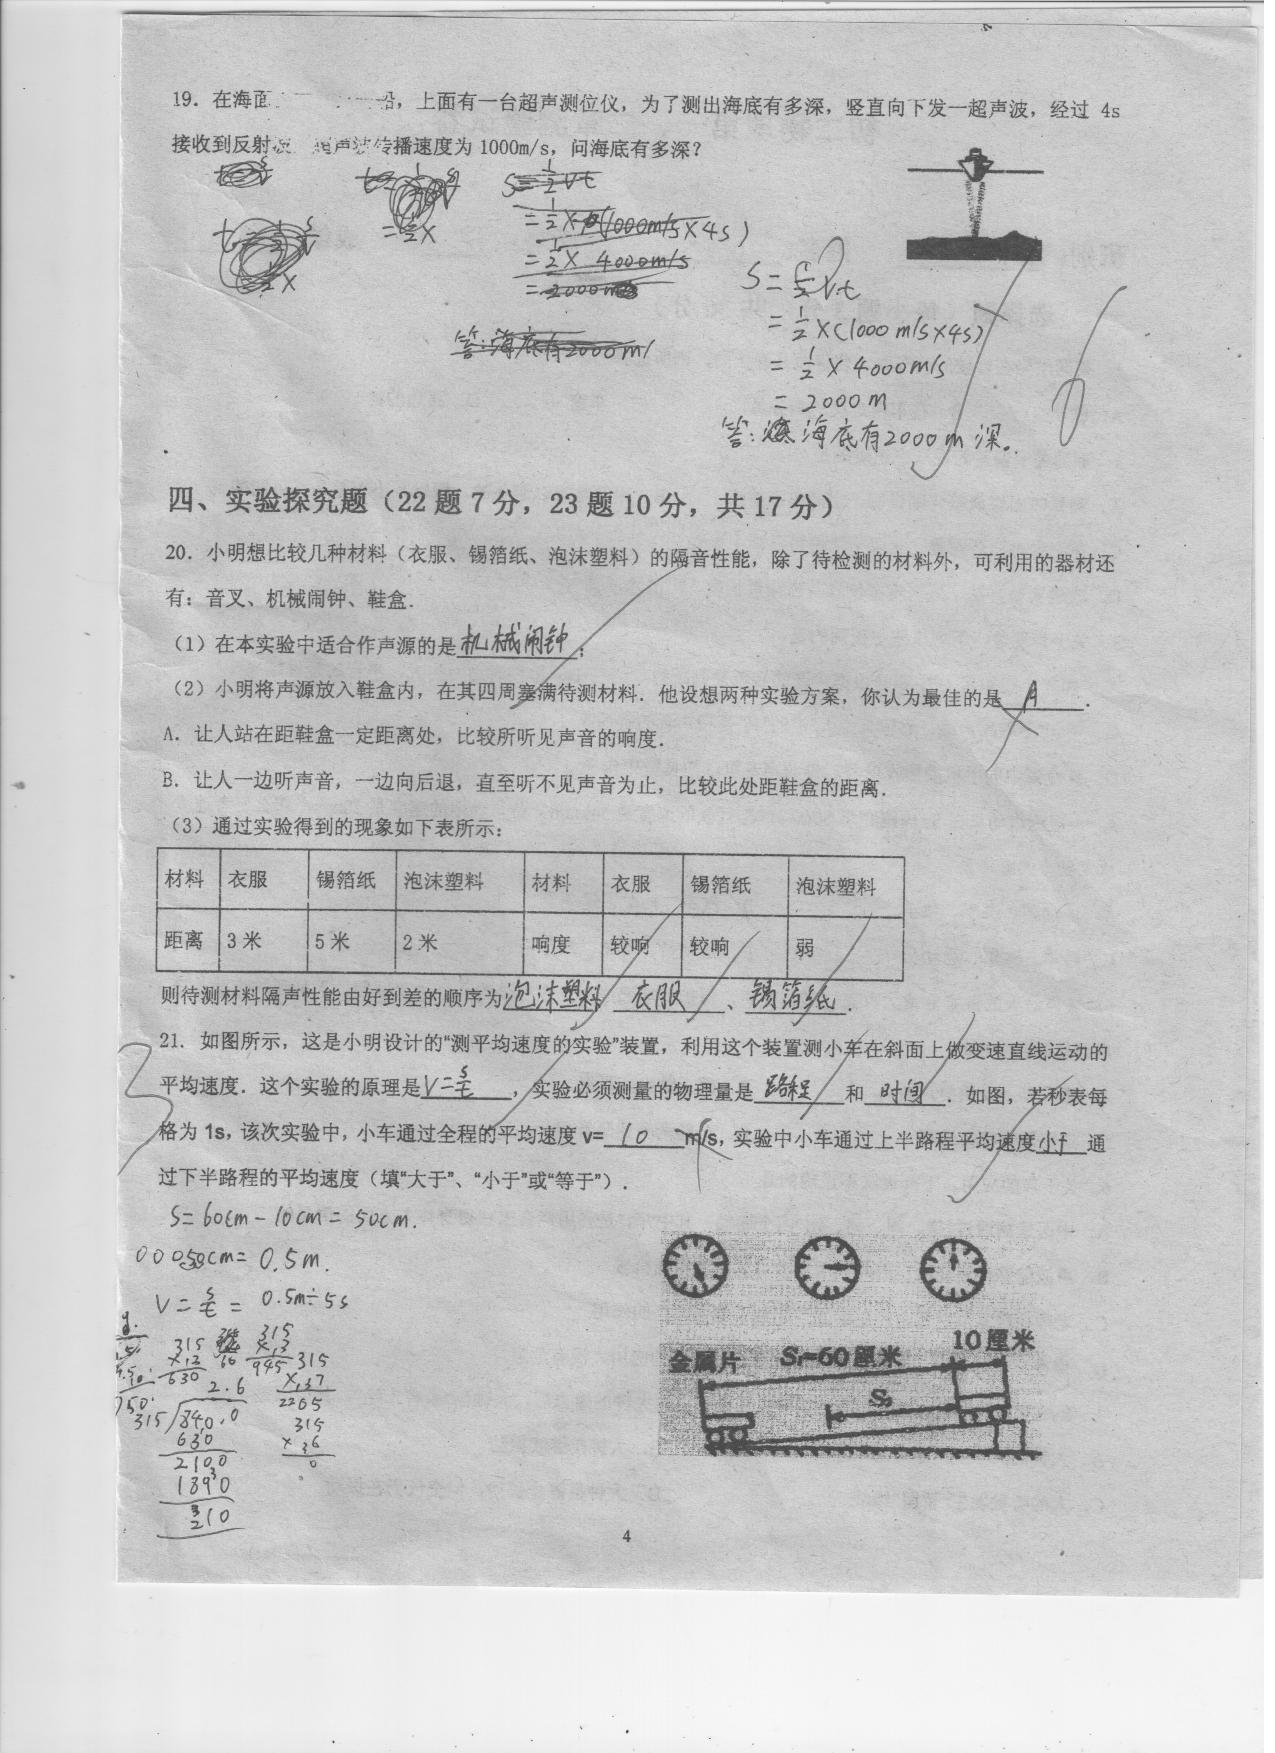 19. 在海面 船，上面有一台超声测位仪，为了测出海底有多深，竖直向下发一超声波，经过 4s
接收到反射波 超声波传播速度为 1000m/s，问海底有多深？
S=½vt
=½×(1000m/s×4s)
=½× 4000m/s
=2000m
答:海底有2000m
S=½vt
=½×(1000m/s×4s)
=½×4000m/s
=2000m
答: 海底有2000m深。
四、实验探究题（22 题 7 分，23 题 10 分，共 17 分）
20. 小明想比较几种材料（衣服、锡箔纸、泡沫塑料）的隔音性能，除了待检测的材料外，可利用的器材还
有：音叉、机械闹钟、鞋盒.
（1）在本实验中适合作声源的是机械闹钟；
（2）小明将声源放入鞋盒内，在其四周塞满待测材料．他设想两种实验方案，你认为最佳的是 A .
A. 让人站在距鞋盒一定距离处，比较所听见声音的响度．
B. 让人一边听声音，一边向后退，直至听不见声音为止，比较此处距鞋盒的距离．
（3）通过实验得到的现象如下表所示：
材料 衣服 锡箔纸 泡沫塑料 材料 衣服 锡箔纸 泡沫塑料
距离 3 米 5 米 2 米 响度 较响 较响 弱
则待测材料隔声性能由好到差的顺序为泡沫塑料 衣服 、锡箔纸.
21. 如图所示，这是小明设计的“测平均速度的实验”装置，利用这个装置测小车在斜面上做变速直线运动的
平均速度．这个实验的原理是V=s/t，实验必须测量的物理量是 路程 和 时间 ．如图，若秒表每
格为 1s，该次实验中，小车通过全程的平均速度 v= 10 m/s，实验中小车通过上半路程平均速度小于通
过下半路程的平均速度（填“大于”、“小于”或“等于”）．
S=60cm-10cm=50cm.
50cm=0.5m.
V=s/t=0.5m÷5s
10厘米
金属片 S₁=60厘米
S₂
315
×.2
630
315
×.3
945
315
×.37
2205
2.6
315 840.0
630
2100
1890
210
315
×.6
0
4